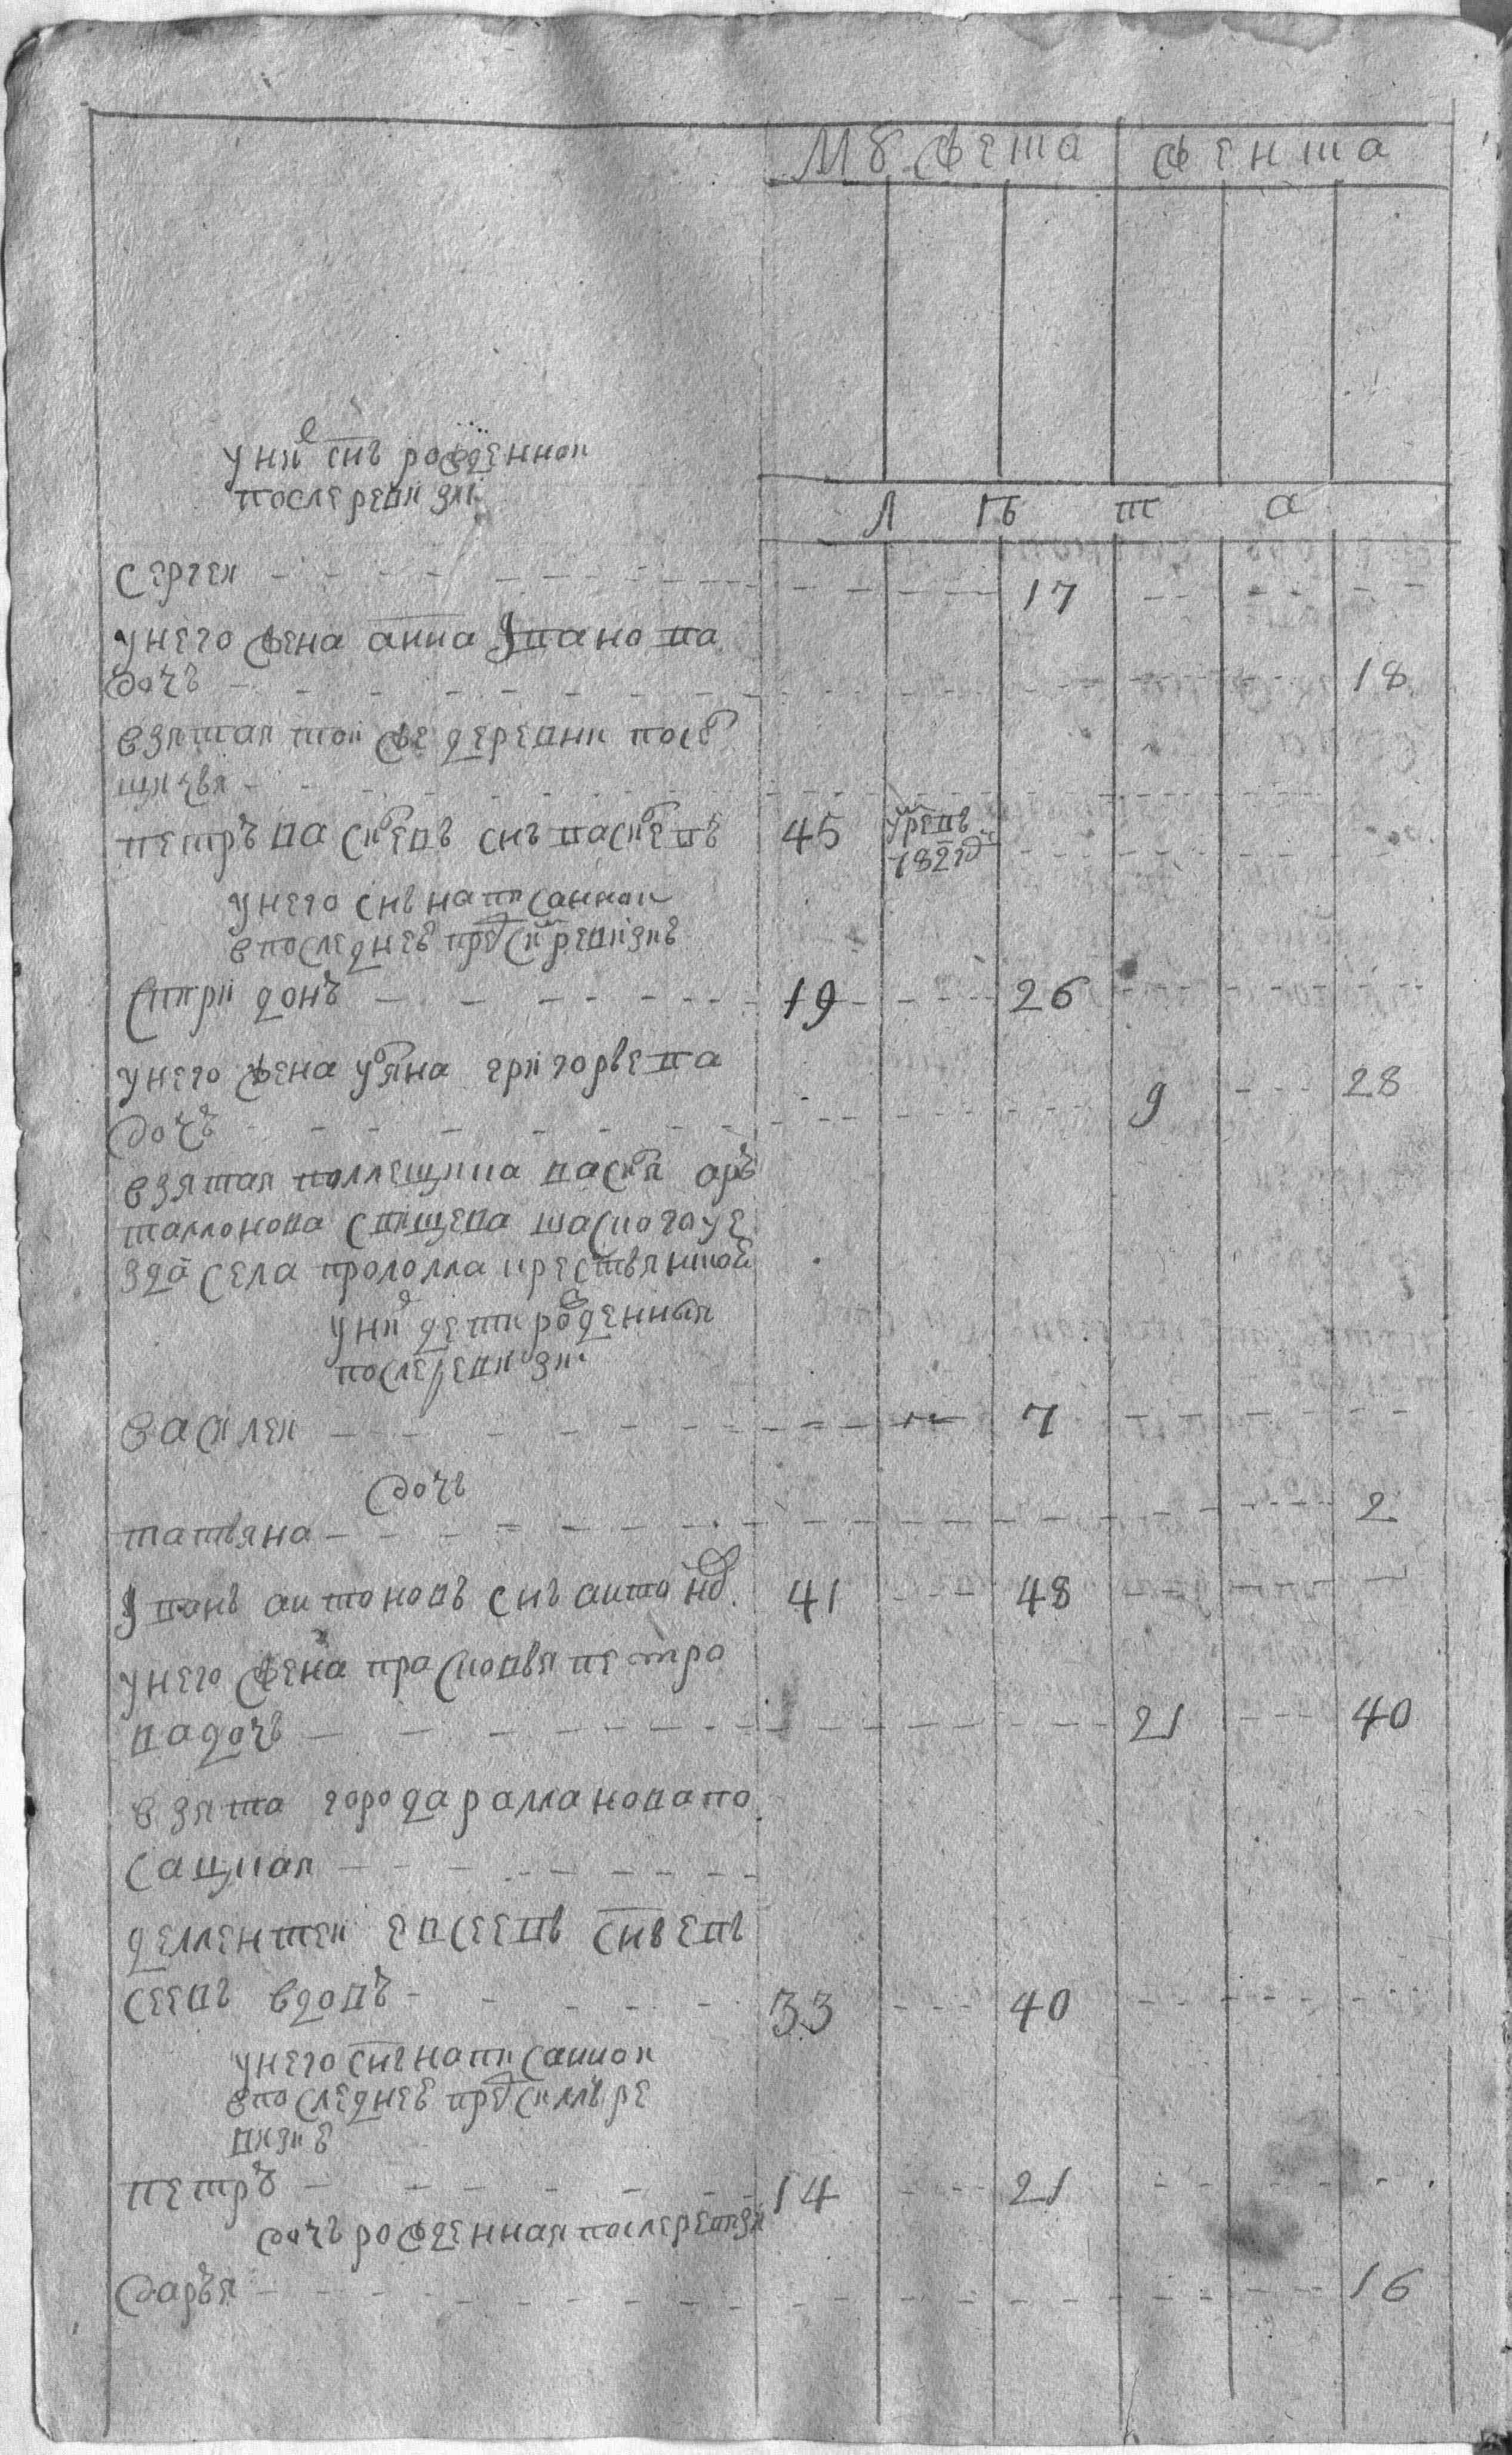 Мужеска женска
лѣта
у них снъ рожденной
после ревизии
Сергей 17
у него жена анна Ивано ва
дочь 18
взятая той же деревни пос
петръ васильевъ снъ васильевъ 45 умре въ 1782 году
у него снъ написанной
в последней пред сим ревизиѣ
Спири донъ 19 26
у него жена ульяна григорьева
дочь 9 28
взятая помещика василья ар
тамонова Спищева шацкого уе
зда села пролома крестьянской
у них дети рожденныя
после ревизии
василей 7
дочь
татьяна 2
Иванъ антоновъ снъ антонов 41 48
у него жена прасковья петро
ва дочь 21 40
взята города раманова по
сацкая
дементей евсеевъ снъ ев
сеевъ вдовъ 33 40
у него снъ написанной
в последней пред симъ ре
визиѣ
петръ 14 21
дочь рожденная после ревизи
дарья 16